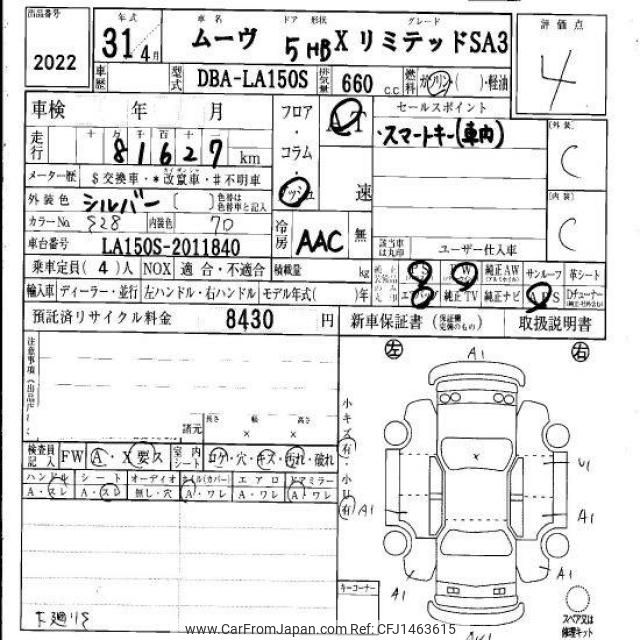 出品番号 年式 車名 ドア 形状 グレード 評価点
2022 31年 4月 ムーヴ 5 HB X リミテッドSA3 4
車歴 型式 DBA-LA150S 排気量 660 c.c 燃料 ガソリン・( )・軽油
車検 年 月 フロア・コラム・インパネ AT 速 セールスポイント
・スマートキー(車内) [外装] C
走行 十 万 千 百 十 一
8 1 6 2 7 km
メーター歴 $交換車・*改竄車・#不明車
外装色 シルバー [ ] 色替は色替車と記入 [内装] C
カラーNo. S28 内装色 70 冷房 AAC 無 該当車は丸印 ユーザー仕入車
車台番号 LA150S-2011840
乗車定員( 4 )人 NOX 適合・不適合 積載量 kg PS PW 純正AW サンルーフ 革シート
輸入車 ディーラー・並行 左ハンドル・右ハンドル モデル年式( )年 エアバッグ 純正TV 純正ナビ ABS Dチューナー
預託済リサイクル料金 8430 円 新車保証書 (保証書完備のもの) 取扱説明書
注意事項(出品店
左 A1 右
諸元 長さ 幅 高さ
× ×
小キズ有・小U有
検査員記入 FW A X 要ス 室内シート コゲ・穴・キズ・汚れ・破れ
ハンドル シート オーディオ ホイル(カバー) エアロ ドアミラー
A・スレ A・スレ 無し・穴 A・ワレ A・ワレ A・ワレ
× U1
A1 A1
A1 A1
キーコーナー
スペア又は修理キット
下廻りS
www.CarFromJapan.com Ref: CFJ1463615